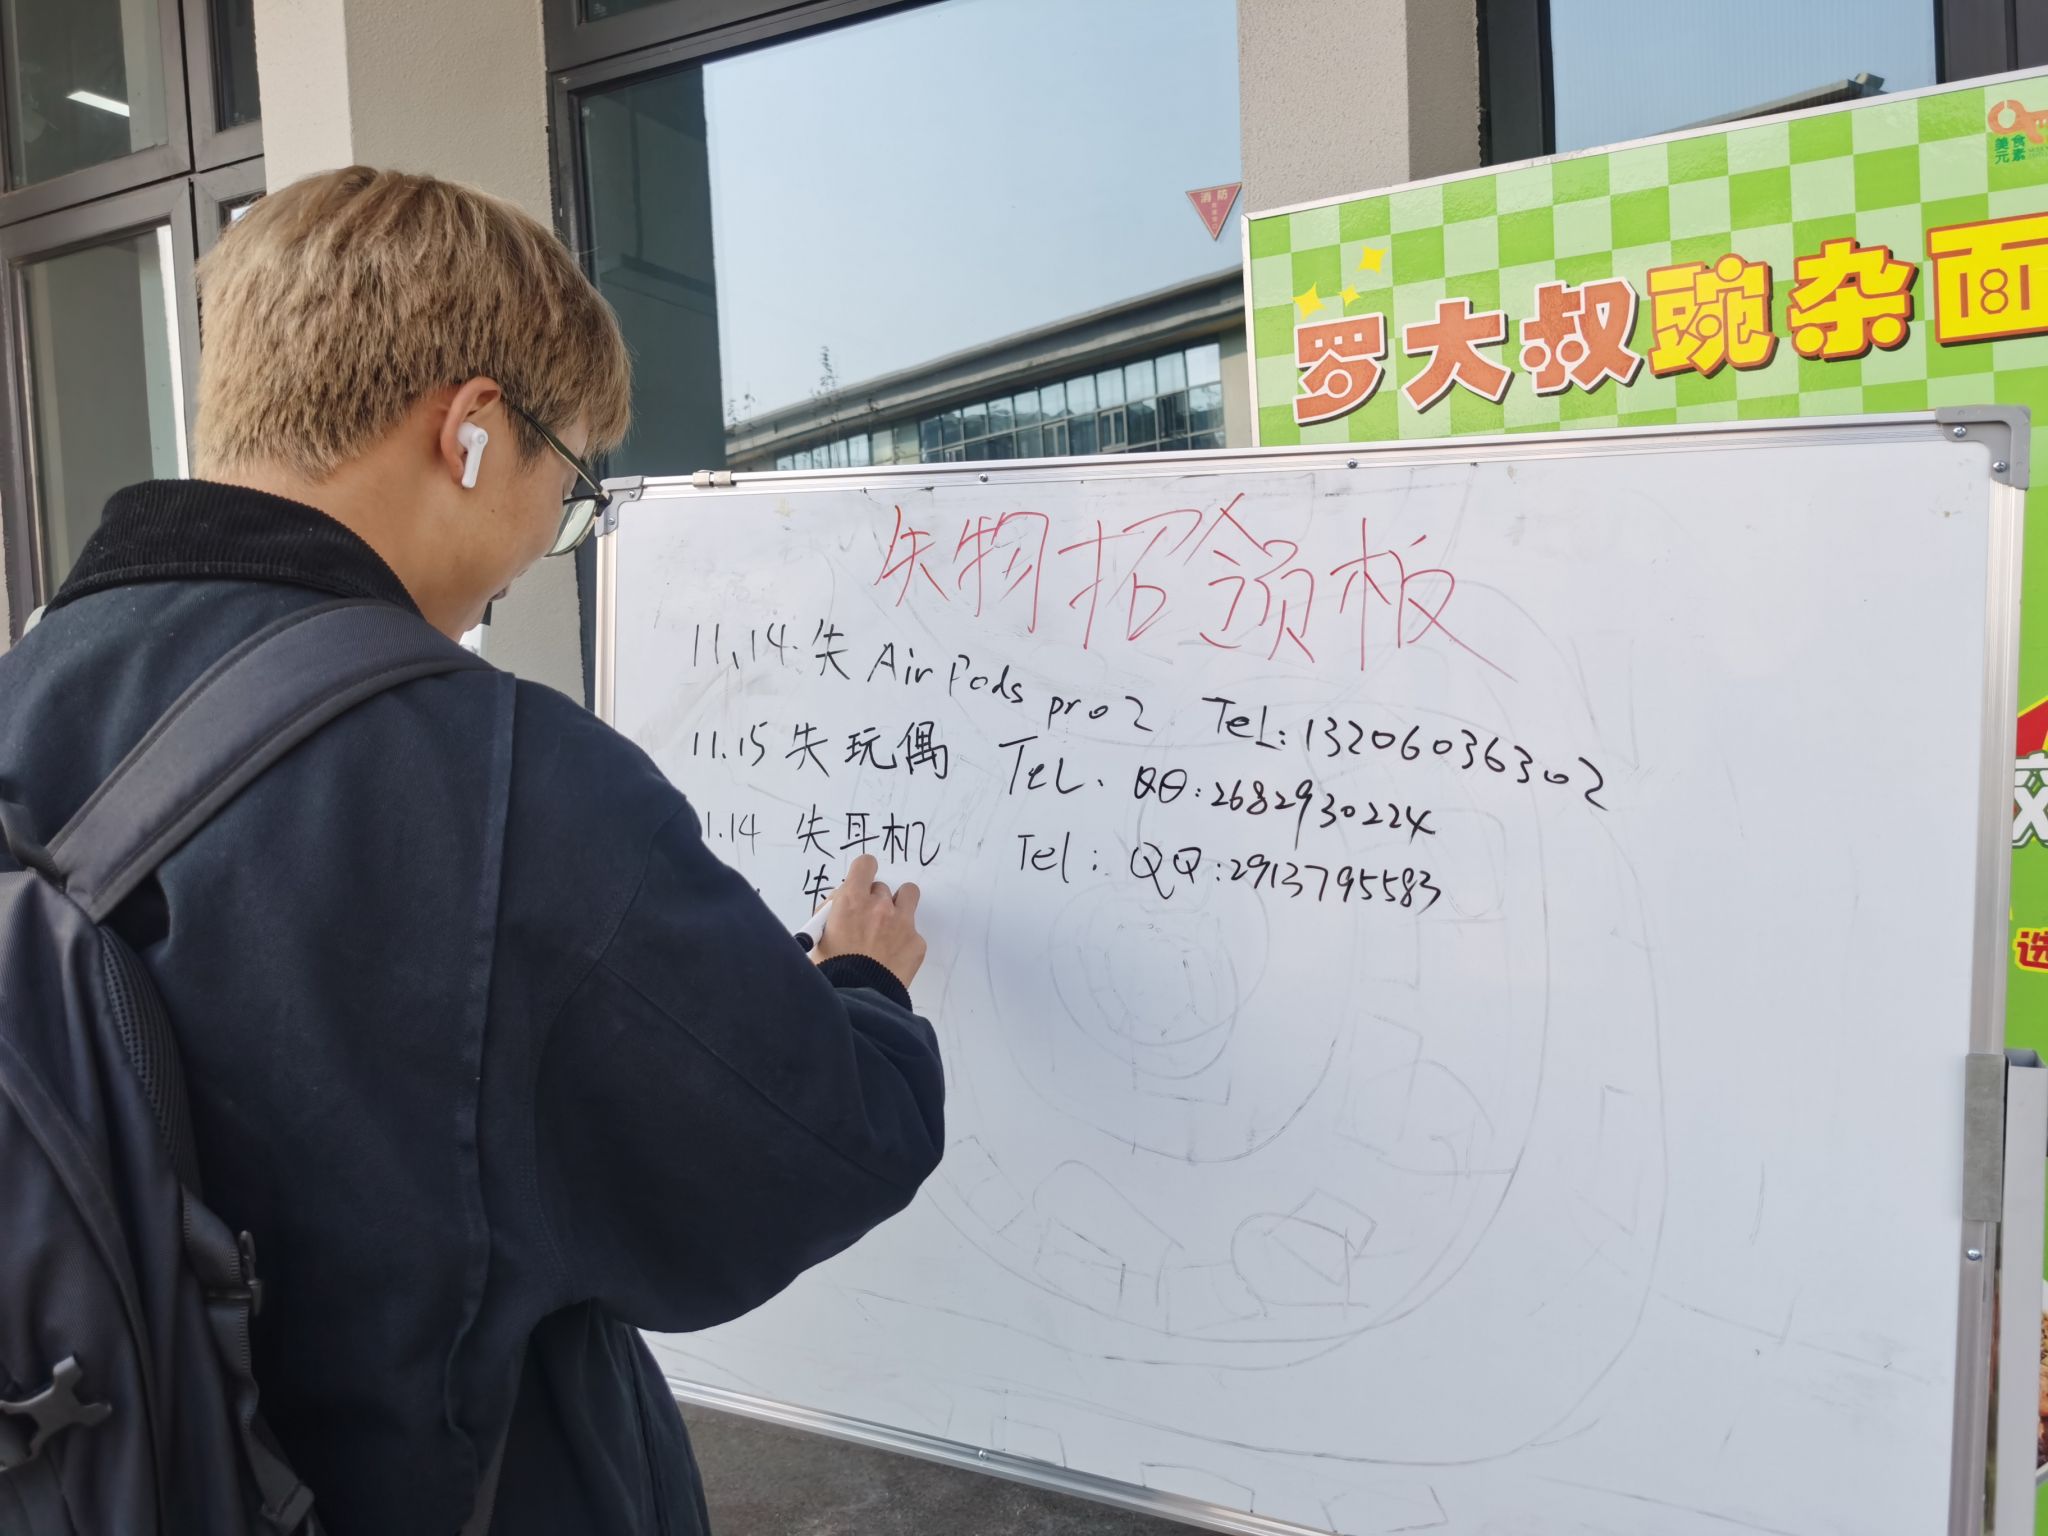 美食
元素
消防
罗大叔豌杂面
失物招领板
11.14.失 AirPods pro2 Tel:13206036302
11.15 失玩偶 Tel. QQ:2682930224
1.14 失耳机 Tel: QQ:2913795583
失
选